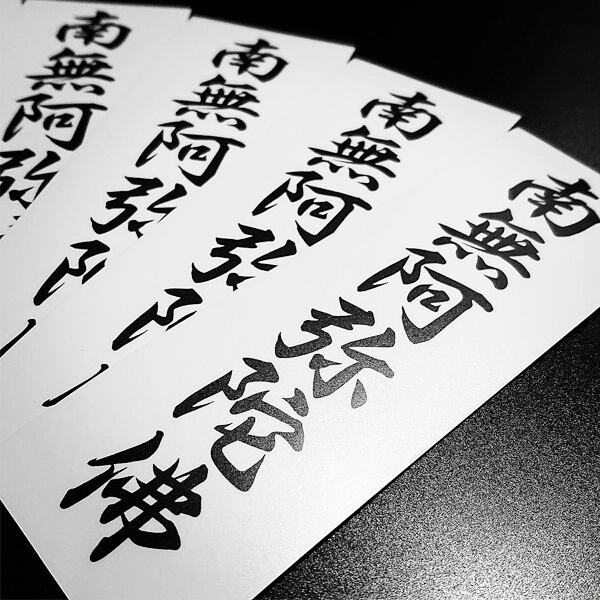 南無阿弥陀佛
南無阿弥陀
南無阿弥陀
南無阿弥